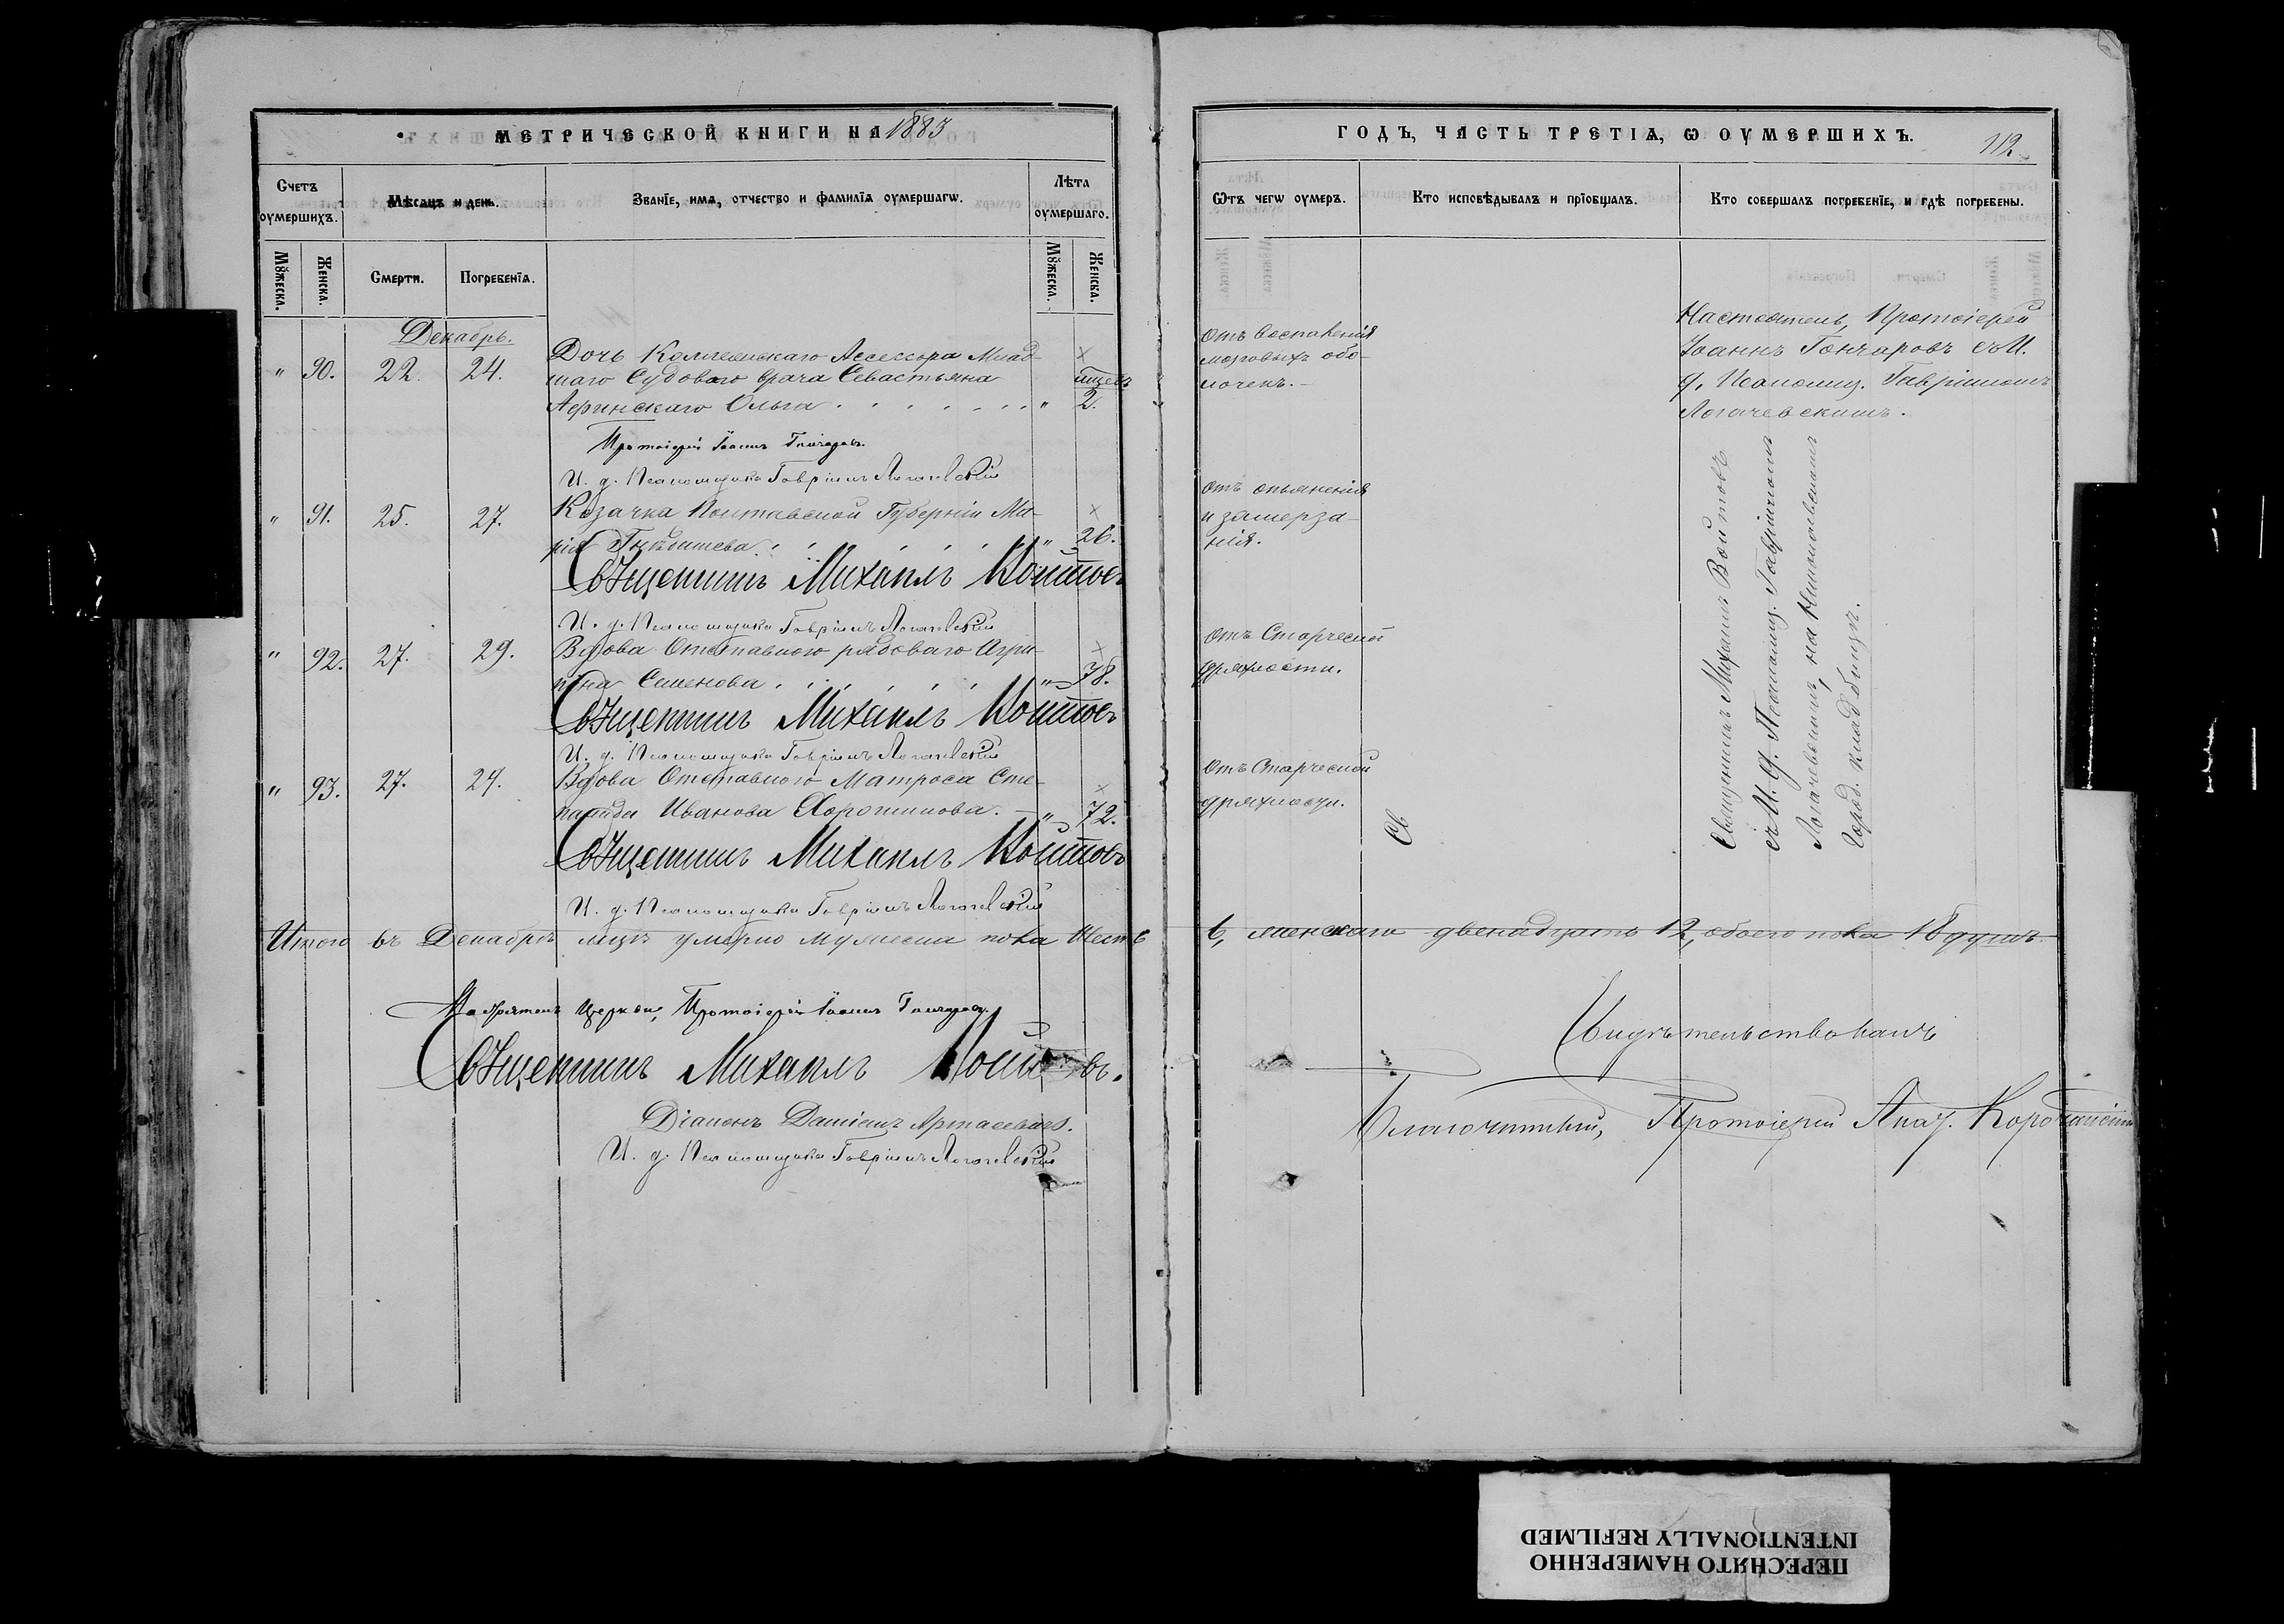 МЕТРИЧЕСКОЙ КНИГИ НА 1883
Счетъ оумершихъ.
Мѣсяцъ и день.
Званіе, имя, отчество и фамилія оумершагѡ.
Лѣта оумершаго.
Мꙋжеска.
Женска.
Смерти.
Погребенія.
Мꙋжеска.
Женска.
Декабрь.
" 90. 22. 24. Дочь Коллежскаго Ассессора Млад-
шаго Судоваго врача Севастьяна
Афинскаго Ольга . . . . . . . " 2.
Протоіерей Іоаннъ Гончаровъ.
И. д. Псаломщика Гавріилъ Логачевскій
" 91. 25. 27. Козачка Полтавской Губерніи Ма-
рія " 26.
Священникъ Михаилъ Войтовъ
И. д. Псаломщика Гавріилъ Логачевскій
" 92. 27. 29. Вдова Отставного рядоваго Агри-
пина Семенова . . . . . . " 78.
Священникъ Михаилъ Войтовъ
И. д. Псаломщика Гавріилъ Логачевскій
" 93. 27. 24. Вдова Отставного Матроса Сте-
панида Иванова " 72.
Священникъ Михаилъ Войтовъ
И. д. Псаломщика Гавріилъ Логачевскій
Итого въ Декабрѣ мцѣ умерло мужеска пола шесть
Настоятель Церкви, Протоіерей Іоаннъ Гончаровъ.
Священникъ Михаилъ Войтовъ.
Діаконъ Даміанъ
И. д. Псаломщика Гавріилъ Логачевскій
ГОДЪ, ЧАСТЬ ТРЕТІЯ, Ѡ ОУМЕРШИХЪ.
112.
Ѿтъ чегѡ оумеръ.
Кто исповѣдывалъ и пріобщалъ.
Кто совершалъ погребеніе, и гдѣ погребены.
Отъ воспаленія
мозговыхъ обо-
лочекъ.
Настоятель, Протоіерей
Іоаннъ Гончаровъ съ И.
д. Псаломщ. Гавріиломъ
Логачевскимъ.
отъ опьяненія
и замерза-
нія.
отъ Старческой
дряхлости.
отъ Старческой
дряхлости.
Св
Священникъ Михаилъ Войтовъ
съ И. д. Псаломщ. Гавріиломъ
Логачевскимъ, на Николаевскомъ
Город. кладбищѣ.
6, женскаго двенадцать 12, обоего пола 18 душъ
Свидѣтельствовалъ
Благочинный, Протоіерей
ПЕРЕСНЯТО НАМЕРЕННО
INTENTIONALLY REFILMED